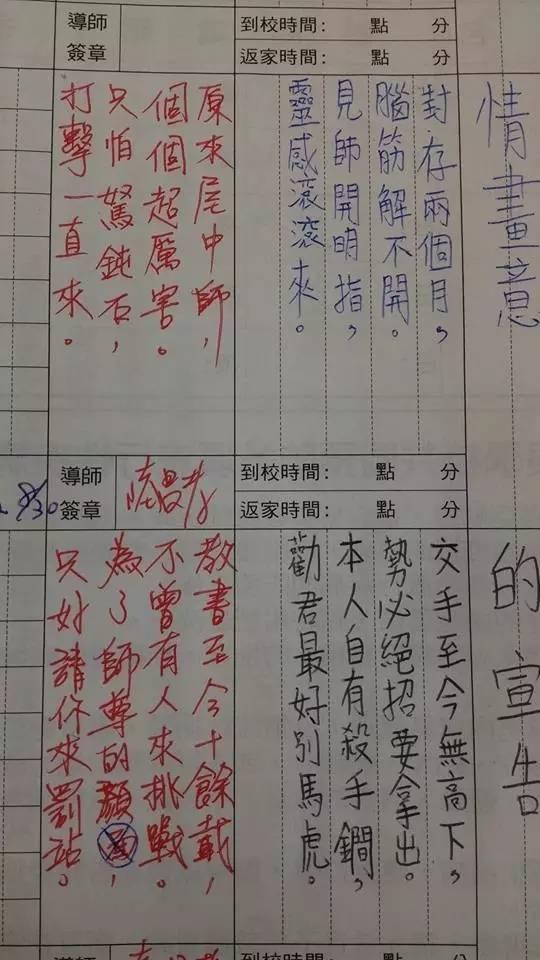 導師
簽章
到校時間： 點 分
返家時間： 點 分
情畫意
封存兩個月，
腦筋解不開。
見師開明指，
靈感滾滾來。
原來尾中師，
個個超厲害。
只怕駑鈍石，
打擊一直來。
8/30
導師
簽章
到校時間： 點 分
返家時間： 點 分
的宣告
交手至今無高下，
勢必絕招要拿出。
本人自有殺手鐧，
勸君最好別馬虎。
教書至今十餘載，
不曾有人來挑戰。
為了師尊的顏面，
只好請你來罰站。
到校時間： 點 分